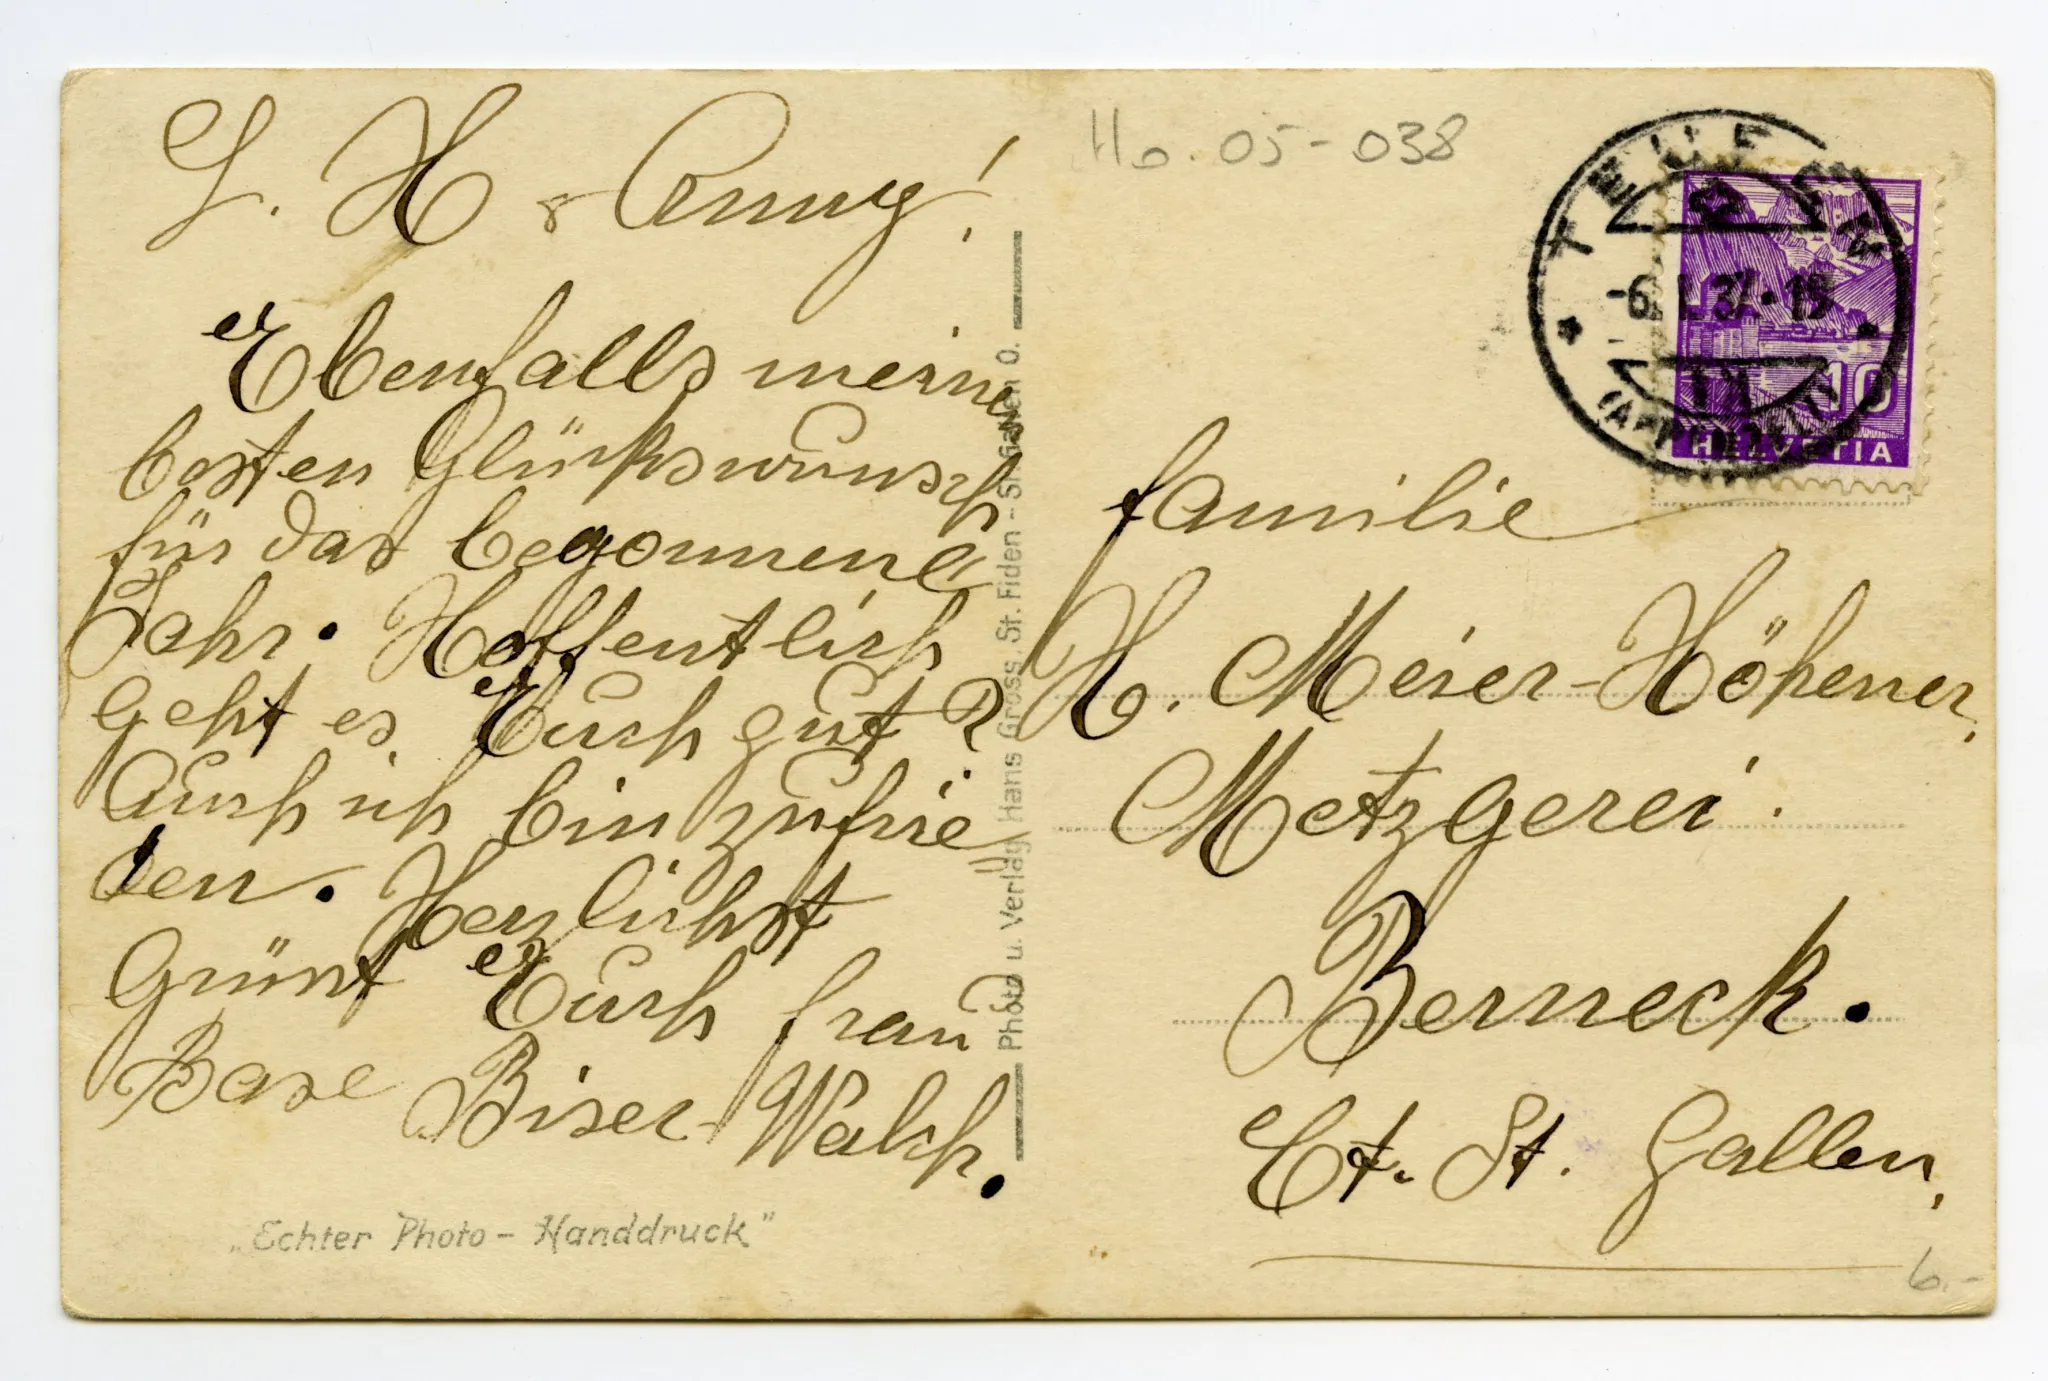 L. H & Anny!
Ebenfalls meine
besten Glückswunsch
für das begonnene
Jahr. Hoffentlich
geht es Euch gut?
Auch ich bin zufrie
den. Herzlichst
Grüsst Euch frau
Base Biser-Walsh.
„Echter Photo - Handdruck"
Photo u. Verlag Hans Gross, St. Fiden - St. Gallen O.
Ho. 05-038
TEUFEN
-6. I. 37.-19
(APPENZELL)
10
HELVETIA
familie
H. Meier-Höhener,
Metzgerei.
Berneck.
Ct. St. Gallen,
6.-